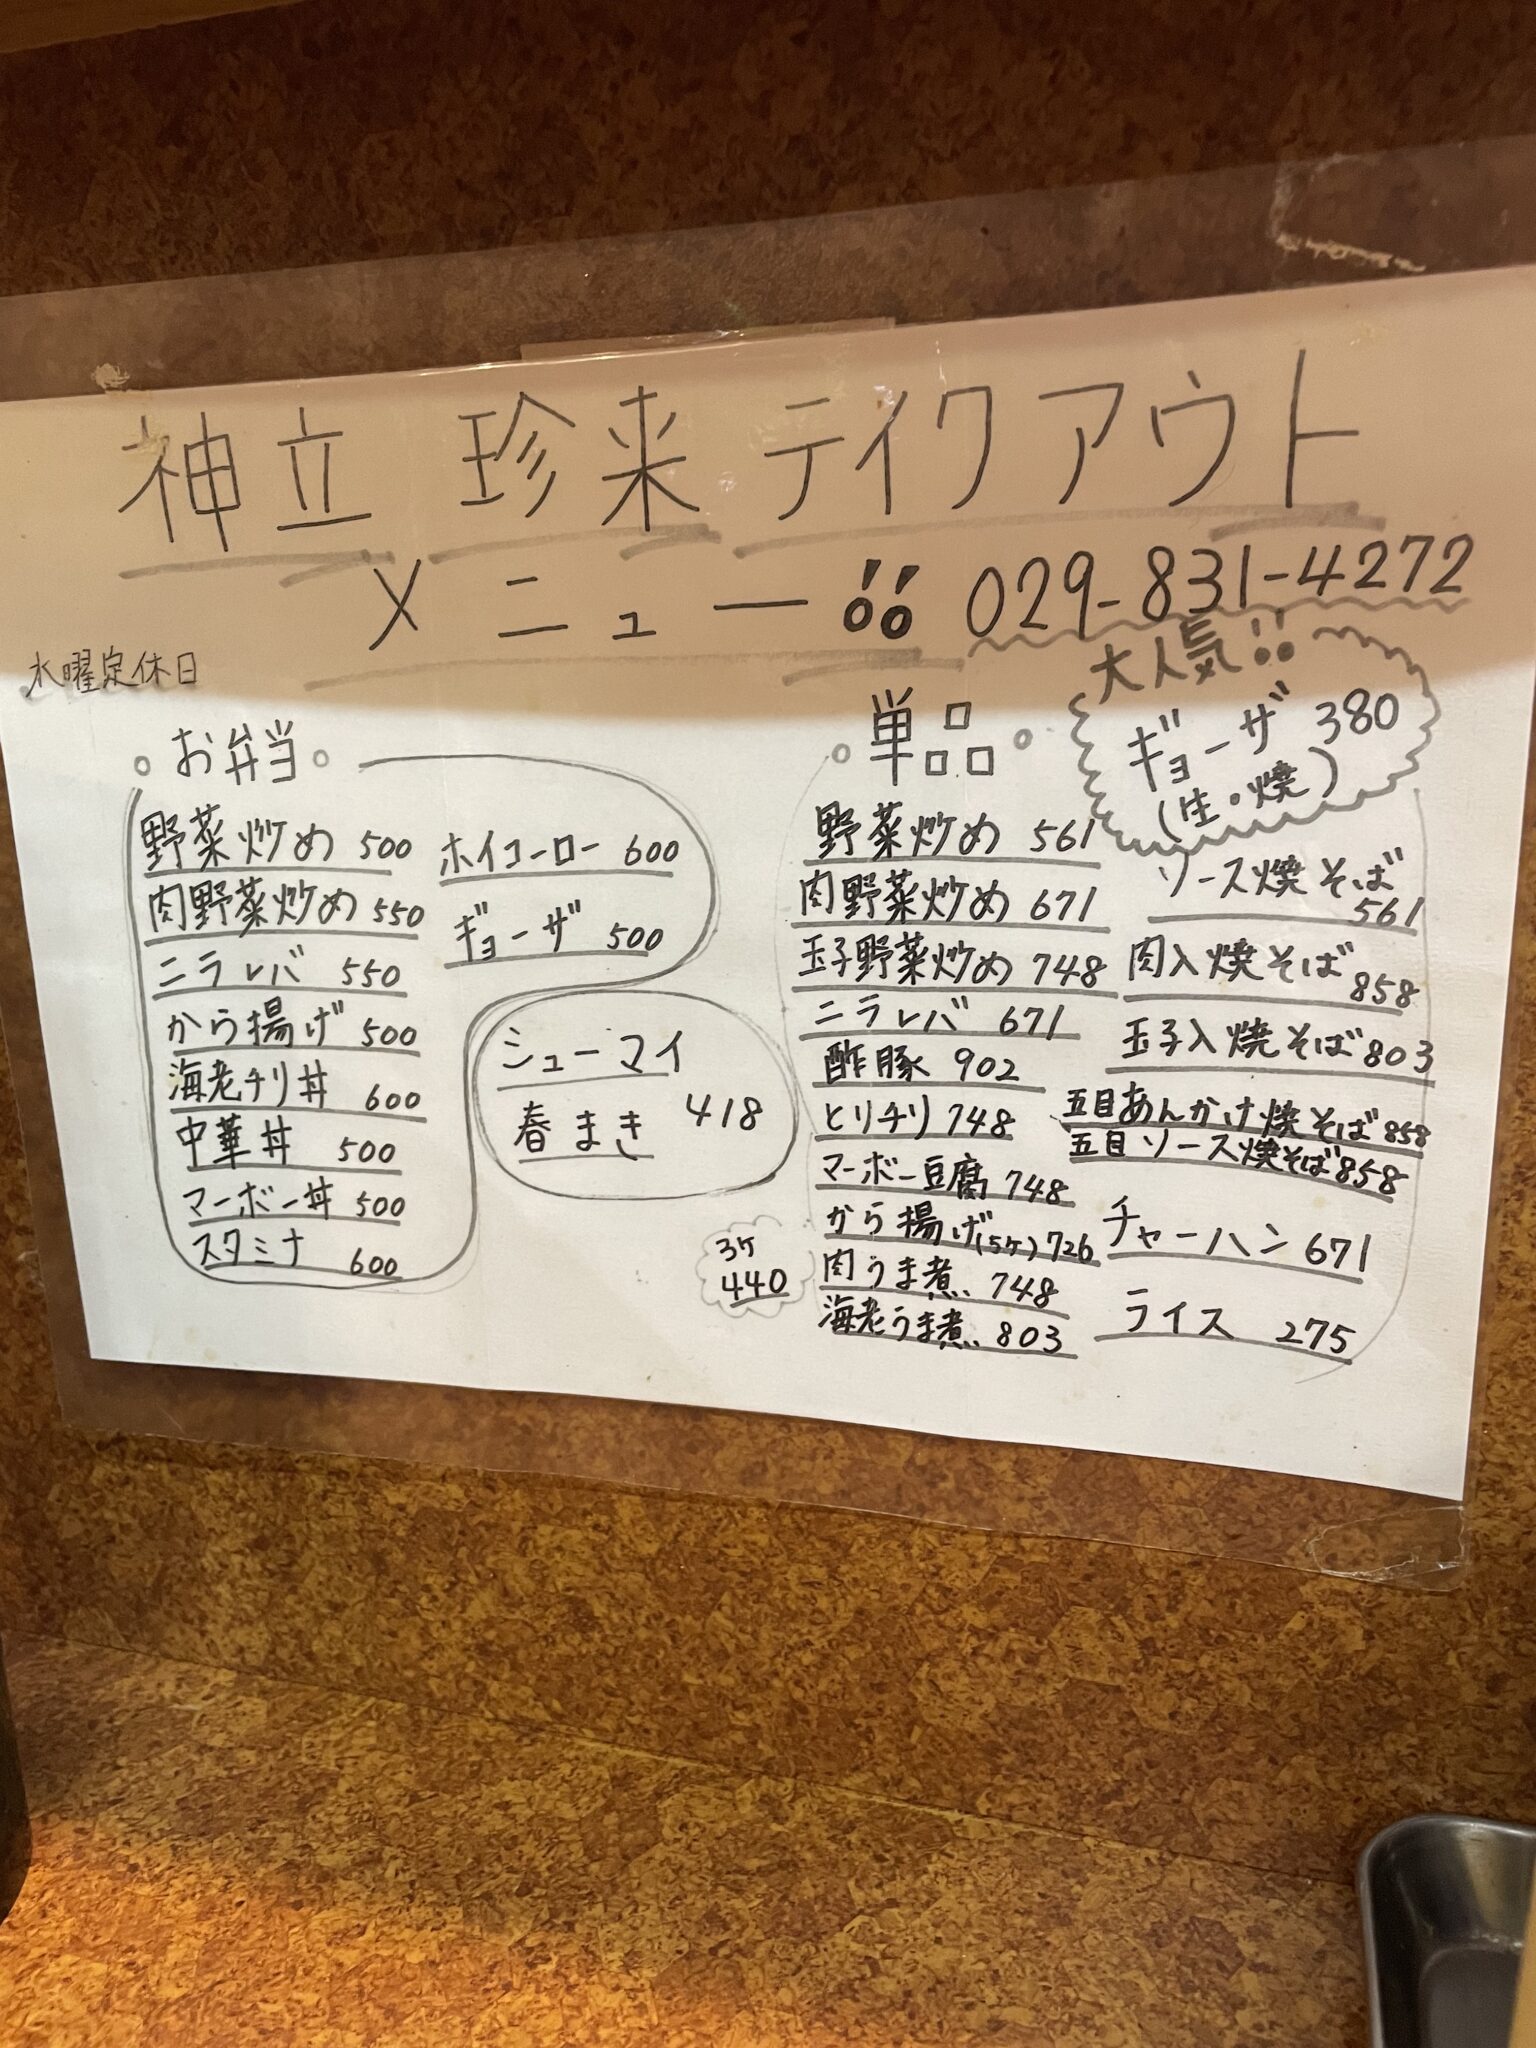 神立 珍来 テイクアウト
メニュー!! 029-831-4272
水曜定休日
お弁当
野菜炒め 500
肉野菜炒め 550
ニラレバ 550
から揚げ 500
海老チリ丼 600
中華丼 500
マーボー丼 500
スタミナ 600
ホイコーロー 600
ギョーザ 500
シューマイ
春まき 418
単品
大人気!!
ギョーザ 380
(生・焼)
野菜炒め 561
肉野菜炒め 671
玉子野菜炒め 748
ニラレバ 671
酢豚 902
とりチリ 748
マーボー豆腐 748
から揚げ(5ケ) 726
3ケ
440
肉うま煮 748
海老うま煮 803
ソース焼そば
561
肉入焼そば 858
玉子入焼そば 803
五目あんかけ焼そば 858
五目ソース焼そば 858
チャーハン 671
ライス 275